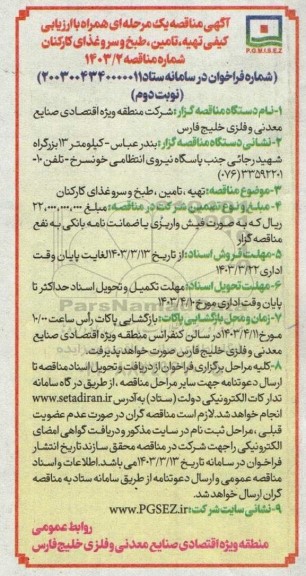 P.G.M.I.S.E.Z
آگهی مناقصه یک مرحله ای همراه با ارزیابی
کیفی تهیه، تامین، طبخ و سرو غذای کارکنان
شماره مناقصه ۱۴۰۳/۲
(شماره فراخوان در سامانه ستاد ۲۰۰۳۰۰۴۳۴۰۰۰۰۰۱۱)
(نوبت دوم)
۱-نام دستگاه مناقصه گزار: شرکت منطقه ویژه اقتصادی صنایع
معدنی و فلزی خلیج فارس
۲-نشانی دستگاه مناقصه گزار: بندرعباس - کیلومتر ۱۳ بزرگراه
شهید رجائی جنب پاسگاه نیروی انتظامی خونسرخ - تلفن ۱۰-
۳۳۵۹۲۲۰۱(۰۷۶)
۳-موضوع مناقصه: تهیه، تامین، طبخ و سرو غذای کارکنان
۴-مبلغ و نوع تضمین شرکت در مناقصه: مبلغ ۲۲,۰۰۰,۰۰۰,۰۰۰
ریال که به صورت فیش واریزی یا ضمانت نامه بانکی به نفع
مناقصه گزار
۵-مهلت فروش اسناد: از تاریخ ۱۴۰۳/۳/۱۳ لغایت پایان وقت
اداری ۱۴۰۳/۳/۲۲
۶-مهلت تحویل اسناد: مهلت تکمیل و تحویل اسناد حداکثر تا
پایان وقت اداری مورخ ۱۴۰۳/۴/۱۰
۷-زمان و محل بازگشایی پاکات: بازگشایی پاکات رأس ساعت ۱۰/۰۰
مورخ ۱۴۰۳/۴/۱۱ در سالن کنفرانس منطقه ویژه اقتصادی صنایع
معدنی و فلزی خلیج فارس صورت خواهد پذیرفت.
۸-کلیه مراحل برگزاری فراخوان از دریافت و تحویل اسناد مناقصه تا
ارسال دعوتنامه جهت سایر مراحل مناقصه، از طریق درگاه سامانه
تدارکات الکترونیکی دولت (ستاد) به آدرس www.setadiran.ir
انجام خواهد شد. لازم است مناقصه گران در صورت عدم عضویت
قبلی، مراحل ثبت نام در سایت مذکور و دریافت گواهی امضای
الکترونیکی را جهت شرکت در مناقصه محقق سازند تاریخ انتشار
فراخوان در سامانه تاریخ ۱۴۰۳/۳/۱۳ می باشد. اطلاعات و اسناد
مناقصه عمومی و ارسال دعوتنامه از طریق سامانه ستاد به مناقصه
گران ارسال خواهد شد.
۹-نشانی سایت شرکت: www.PGSEZ.ir
روابط عمومی
منطقه ویژه اقتصادی صنایع معدنی و فلزی خلیج فارس